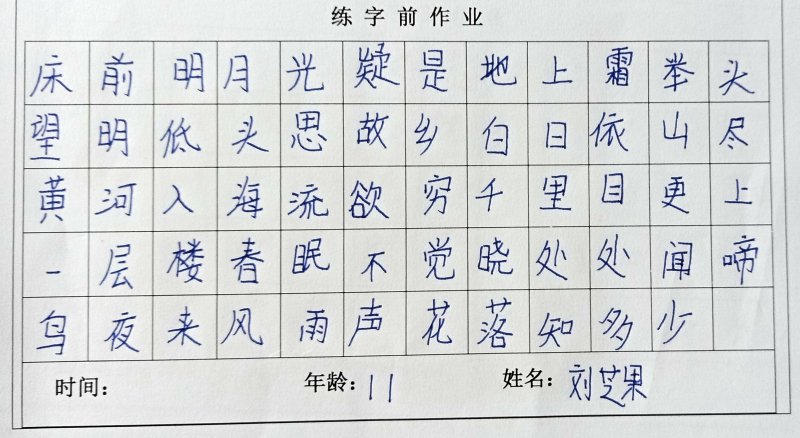 练字前作业
床前明月光疑是地上霜举头
望明低头思故乡白日依山尽
黄河入海流欲穷千里目更上
一层楼春眠不觉晓处处闻啼
鸟夜来风雨声花落知多少
时间： 年龄：11 姓名：刘芝果